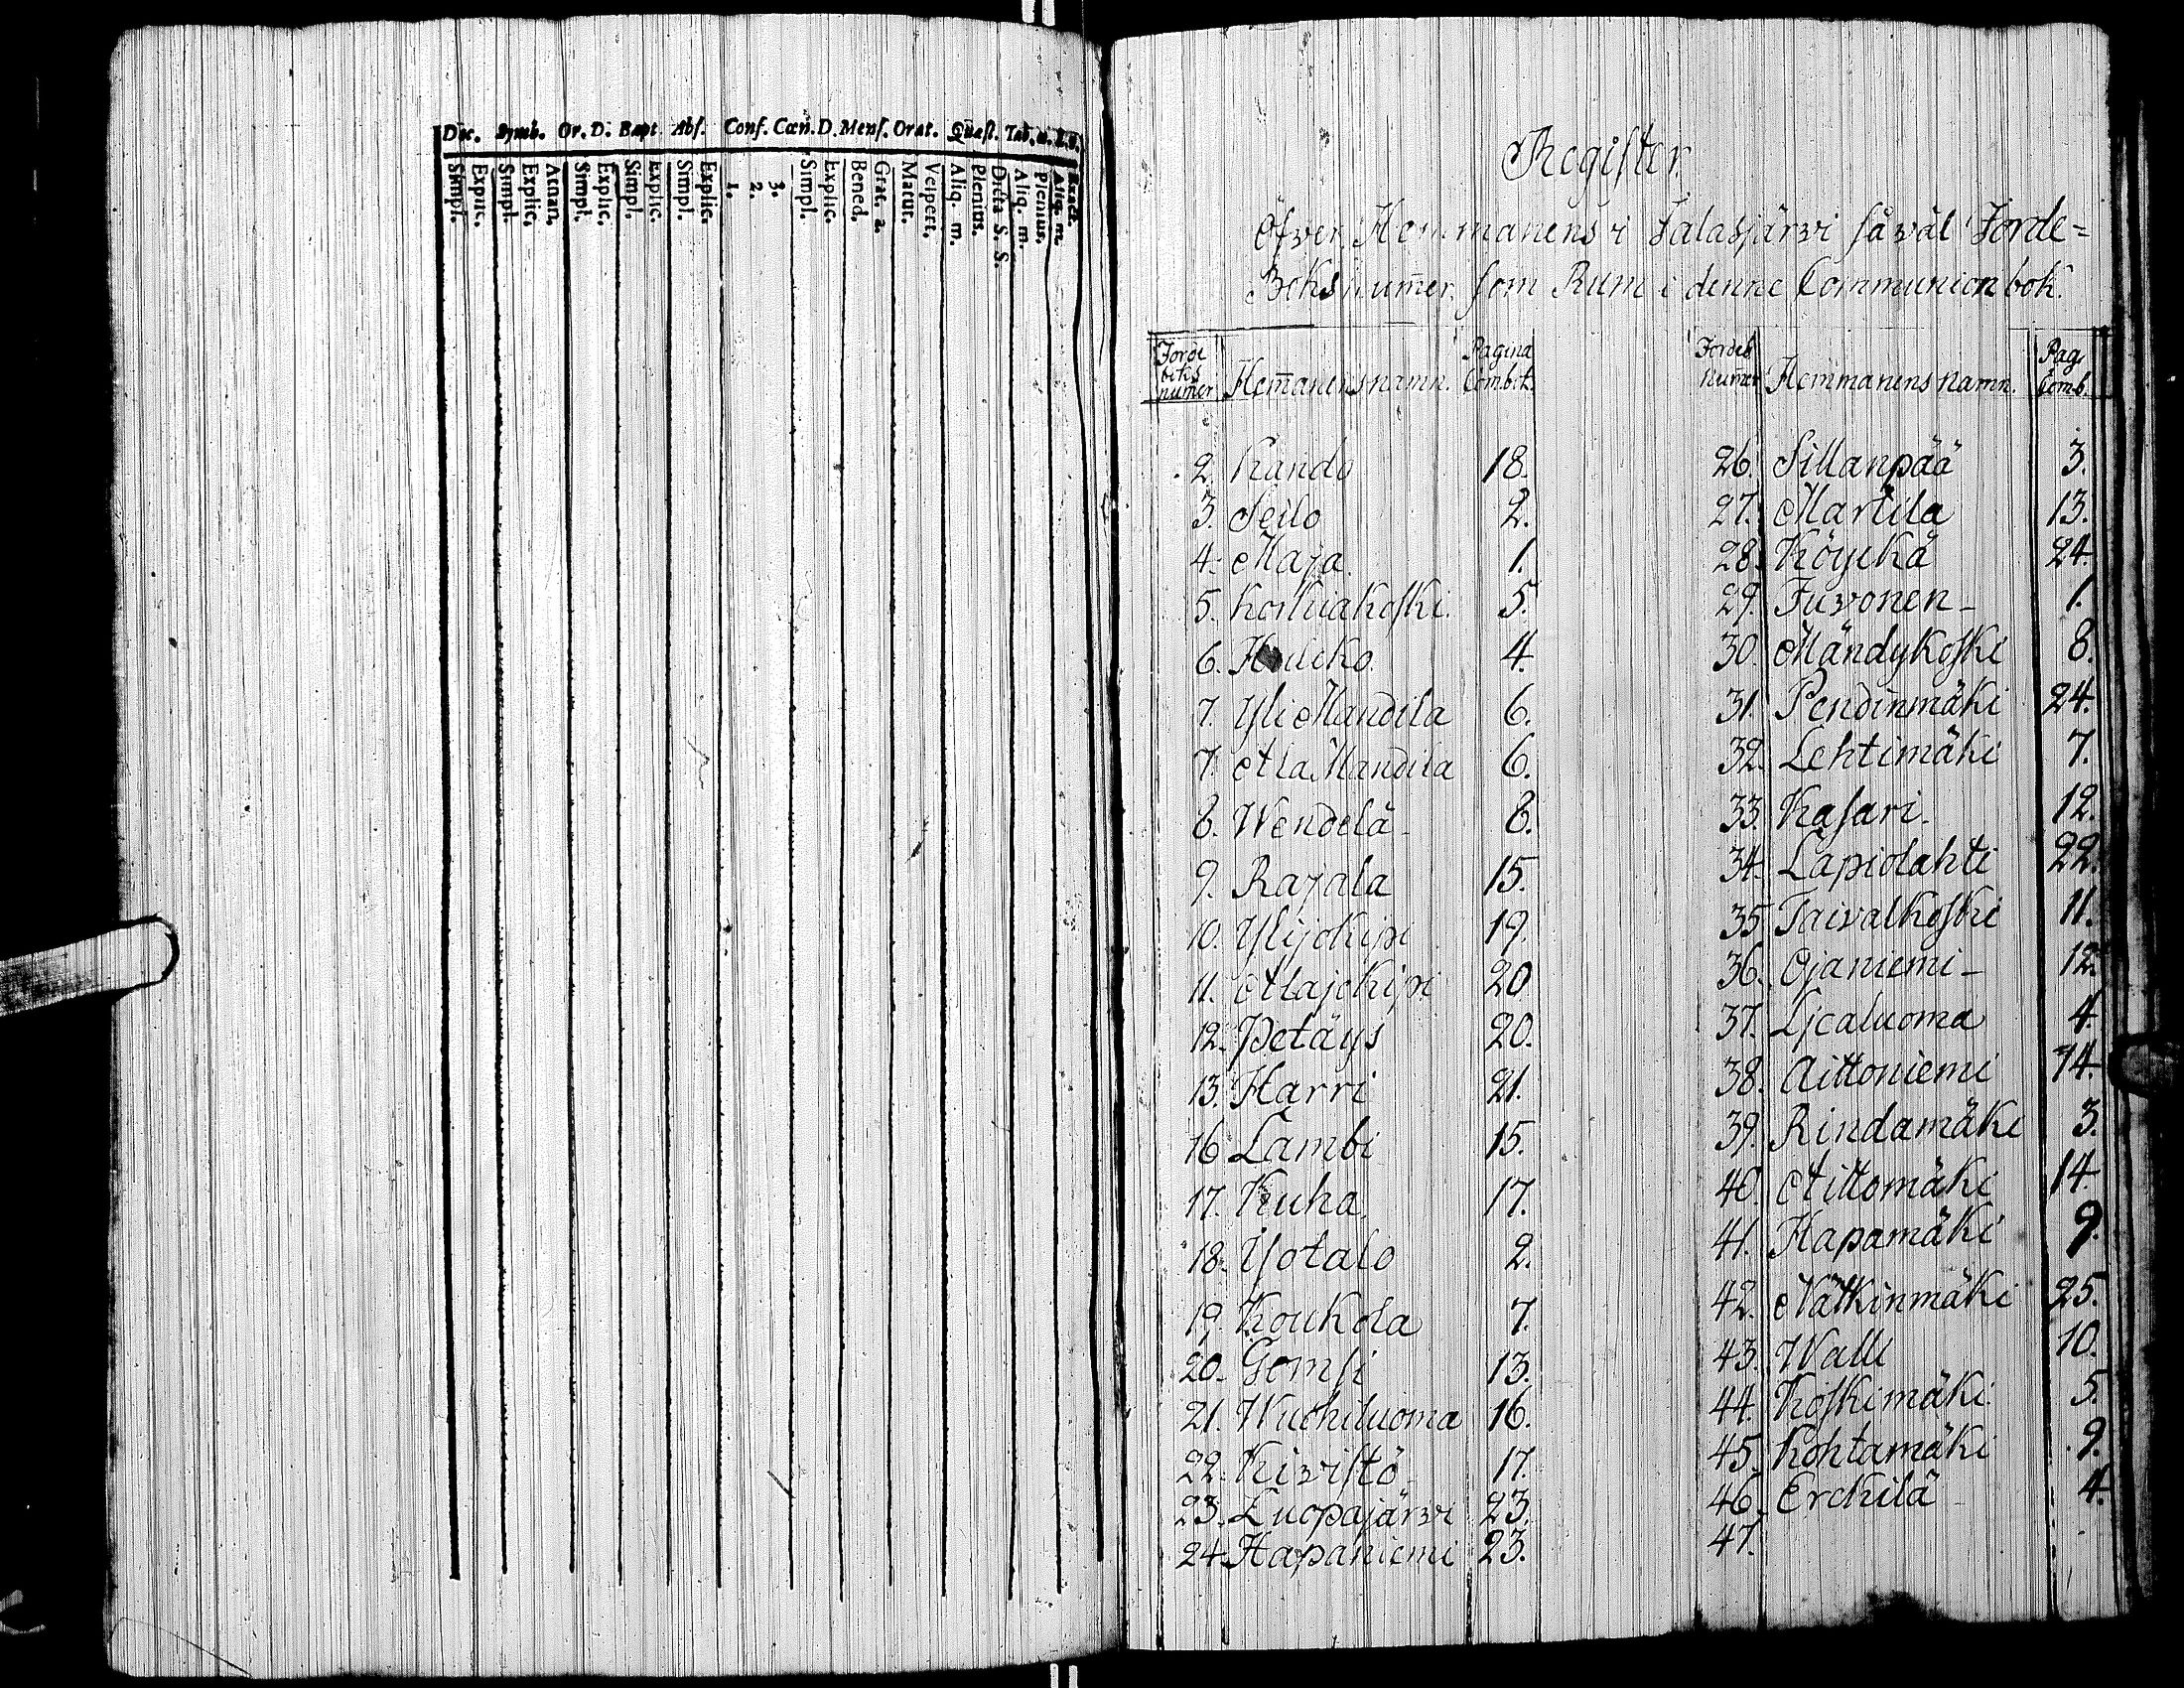 Dec. Symb. Or. D. Bapt. Abſ. Conf. Cœn. D. Menſ. Orat. Quæſt. Tab. œ.
Simpl. Explic. Simpl. Explic. Athan. Simpl. Explic. Simpl. Explic. Simpl. Explic. 1. 2. 3. Simpl. Explic. Bened. Grat. a. Matut. Veſpert. Aliq. m. Plenius. Dicta S. S. Aliq. m. Plenius. Aliq. m. Exact.
Regiſter
öfver Hemmanens i Jalasjärvi ſå väl Jorde=
Boks num̄er ſom Rum i denne Communion bok.
Jorde boks num̄er Hem̄anens namn. Pagina Comb.t.
2. Kando 18.
3. Seilo 2.
4. Maja 1.
5. Koskiakoſki. 5.
6. 4.
7. Yli Mandila 6.
7. Ala Mandila 6.
8. Wendelä 8.
9. Rajala 15.
10. Ylijokipi 19.
11. Alajokipi 20
12. Petäys 20.
13. Harri 21.
16 Lambi 15.
17. Kuha 17.
18. Yotalo 2.
19. Koukola 7.
20. Gomſi 13.
21. Wuohiluoma 16.
22. Kiviſtö 17.
23. Luopajärvi 23.
24. Hapaniemi 23.
Jordeb. Num̄er Hemmanens namn. Pag. Comb.
26. Sillanpää 3.
27. Martila 13.
28. Köykä 24.
29. Juvonen 1.
30. Mändykoſki 8.
31. Pendinmäki 24.
32. Lehtimäki 7.
33. Kaſari 12.
34. Lapiolahti 22.
35. Taivalkoſki 11.
36. Ojaniemi 12.
37. Ljcaluoma 4.
38. Aittoniemi 14.
39. Rindamäki 3.
40. Aittomäki 14.
41. Hapamäki 9.
42. Nätkinmäki 25.
43. Walli 10.
44. Koſkimäki 5.
45. Kohtamäki 9.
46. Erckilä 4.
47.